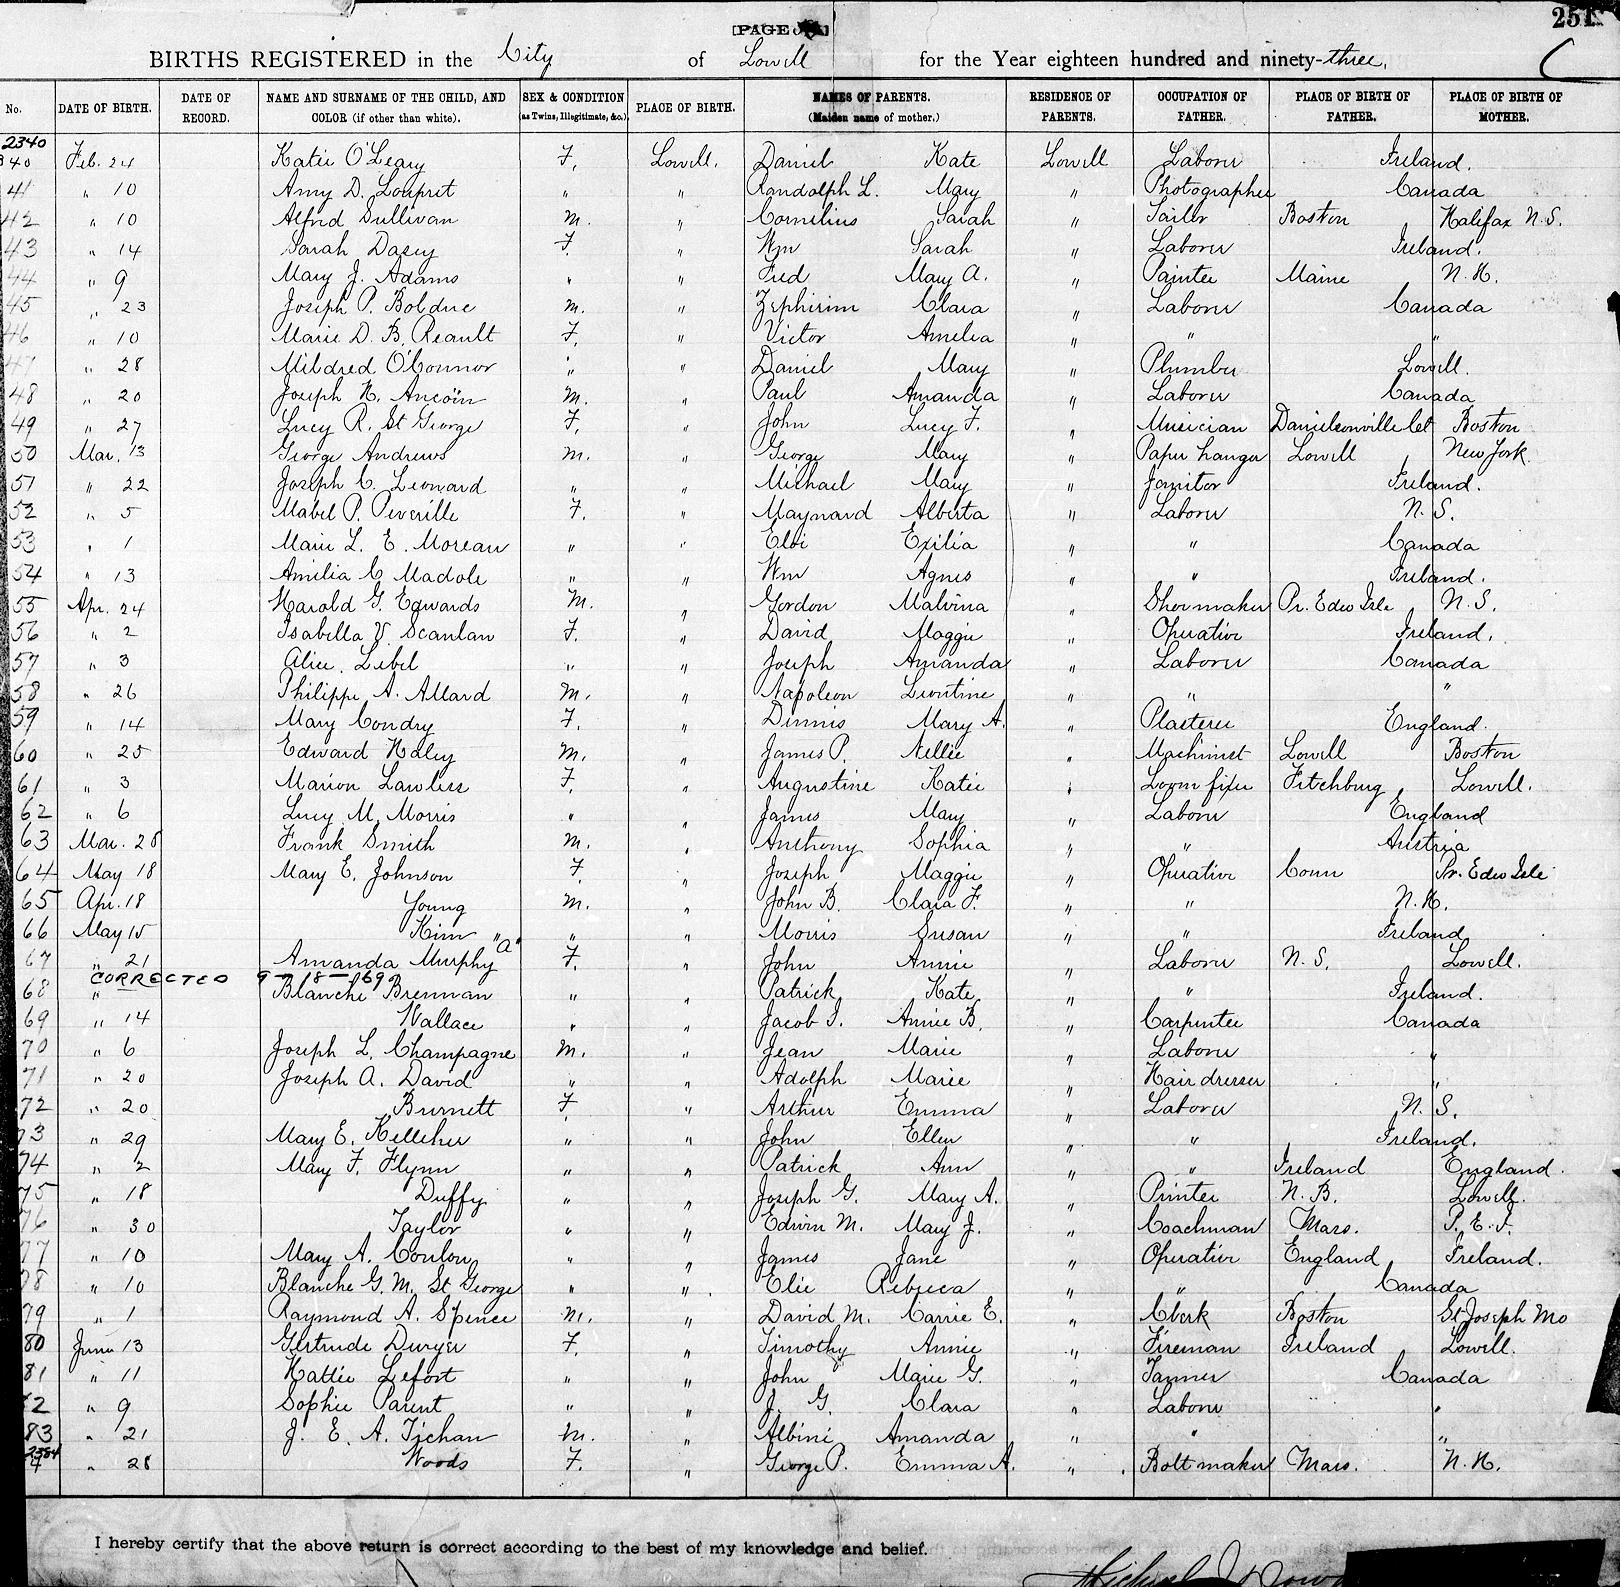 251
[PAGE
BIRTHS REGISTERED in the City of Lowell for the Year eighteen hundred and ninety-three,
No. DATE OF BIRTH. DATE OF RECORD. NAME AND SURNAME OF THE CHILD, AND COLOR (if other than white). SEX & CONDITION (as Twins, Illegitimate, &c.) PLACE OF BIRTH. NAMES OF PARENTS. (Maiden name of mother.) RESIDENCE OF PARENTS. OCCUPATION OF FATHER. PLACE OF BIRTH OF FATHER. PLACE OF BIRTH OF MOTHER.
2340
40 Feb. 24 Katie O'Leary F. Lowell. Daniel Kate Lowell Laborer Ireland.
41 " 10 Amy D. Loupret " " Randolph L. Mary " Photographer Canada
42 " 10 Alfred Sullivan M. " Cornelius Sarah " Tailor Boston Halifax N.S.
43 " 14 Sarah Dasey F. " Wm Sarah " Laborer Ireland.
44 " 9 Mary J. Adams " " Fred Mary A. " Painter Maine N.H.
45 " 23 Joseph P. Bolduc M. " Zephirim Clara " Laborer Canada
46 " 10 Marie D. B. Reault F. " Victor Amelia " " "
47 " 28 Mildred O'Connor " " Daniel Mary " Plumber Lowell.
48 " 20 Joseph N. Ancoin M. " Paul Amanda " Laborer Canada
49 " 27 Lucy R. St George F. " John Lucy F. " Musician Danielsonville Ct Boston
50 Mar. 13 George Andrews M. " George Mary " Paper hanger Lowell New York
51 " 22 Joseph C. Leonard " " Michael Mary " Janitor Ireland.
52 " 5 Mabel P. Peverille F. " Maynard Alberta " Laborer N.S.
53 " 1 Marie L. E. Moreau " " Eloi Exilia " " Canada
54 " 13 Amelia C Madole " " Wm Agnes " " Ireland.
55 Apr. 24 Harold G. Edwards M. " Gordon Malvina " Shoemaker Pr. Edw Isle N.S.
56 " 2 Isabella V. Scanlan F. " David Maggie " Operative Ireland.
57 " 3 Alice Lebel " " Joseph Amanda " Laborer Canada
58 " 26 Philippe A. Allard M. " Napoleon Leontine " " "
59 " 14 Mary Condry F. " Dennis Mary A. " Plasterer England.
60 " 25 Edward Haley M. " James P. Nellie " Machinist Lowell Boston
61 " 3 Marion Lawless F. " Augustine Katie " Loom fixer Fitchburg Lowell.
62 " 6 Lucy M. Morris " " James Mary " Laborer England
63 Mar. 28 Frank Smith M. " Anthony Sophia " " Austria
64 May 18 Mary E. Johnson F. " Joseph Maggie " Operative Conn Pr. Edw Isle
65 Apr. 18 Young M. " John B. Clara F. " " N.H.
66 May 15 Kim " " Morris Susan " " Ireland
67 " 21 Amanda "A" Murphy F. " John Annie " Laborer N.S. Lowell.
CORRECTED 9-18-69
68 " Blanche Brennan " " Patrick Kate " " Ireland.
69 " 14 Wallace " " Jacob I. Annie B. " Carpenter Canada
70 " 6 Joseph L. Champagne M. " Jean Marie " Laborer "
71 " 20 Joseph A. David " " Adolph Marie " Hair dresser "
72 " 20 Burnett F. " Arthur Emma " Laborer N.S.
73 " 29 Mary E. Kelleher " " John Ellen " " Ireland.
74 " 2 Mary F. Flynn " " Patrick Ann " " Ireland England.
75 " 18 Duffy " " Joseph G. Mary A. " Printer N.B. Lowell.
76 " 30 Taylor " " Edwin M. Mary J. " Coachman Mass. P.E.I.
77 " 10 Mary A. Conlon " " James Jane " Operative England Ireland.
78 " 10 Blanche G. M. St George " " Elie Rebecca " " Canada
79 " 1 Raymond A. Spence M. " David M. Carrie E. " Clerk Boston St Joseph Mo
80 June 13 Gertrude Dwyer F. " Timothy Annie " Fireman Ireland Lowell.
81 " 11 Hattie Lefort " " John Marie G. " Tanner Canada
82 " 9 Sophie Parent " " J. G. Clara " Laborer "
83 " 21 J. E. A. Tichan M. " Albini Amanda " " "
2384 " 28 Woods F. " George P. Emma A. " Bolt maker Mass. N.H.
I hereby certify that the above return is correct according to the best of my knowledge and belief.
Michael J